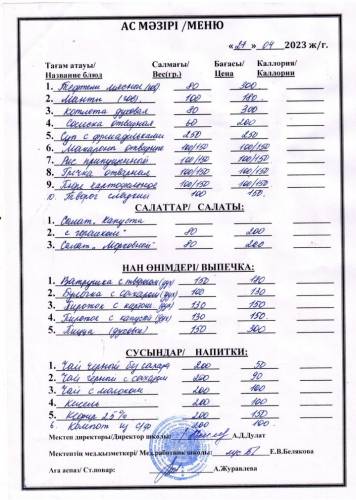 АС МӘЗІРІ /МЕНЮ
«21 » 04 2023 ж/г.
Тағам атауы/ Салмағы/ Бағасы/ Каллория/
Название блюд Вес(гр.) Цена Каллории
1. Тефтели 80 300
2. Манты 100 180
3. Котлета духовая 80 300
4. Сосиска отварная 60 200
5. Суп с фрикадельками 250 250
6. Макароны отварные 100/150 100/150
7. Рис припущенный 100/150 100/150
8. Гречка отварная 100/150 100/150
9. Пюре картофельное 100/150 100/150
10. 100 150
САЛАТТАР/ САЛАТЫ:
1. Салат. Капуста
2. с горошком" 80 200
3. Салат „Морковный" 80 200
НАН ӨНІМДЕРІ/ ВЫПЕЧКА:
1. Ватрушка с творогом (дух) 150
2. Булочка с сахаром (дух) 100 130
3. Пирожок с (дух) 130 150
4. Пирожок с капустой (дух) 130 150
5. Пицца (духовая) 150 300
СУСЫНДАР/ НАПИТКИ:
1. Чай черный без сахара 200 50
2. Чай черный с сахаром 200 90
3. Чай с молоком 200 100
4. Кисель 200 100
5. Кефир 2,5% 200 150
6. Компот из с/ф 200 100
Мектеп директоры/Директор школы: А.Д.Дулат
Мектептің мед.қызметкері/ Мед.работник школы: Е.В.Белякова
Аға аспаз/ Ст.повар: А.Журавлева